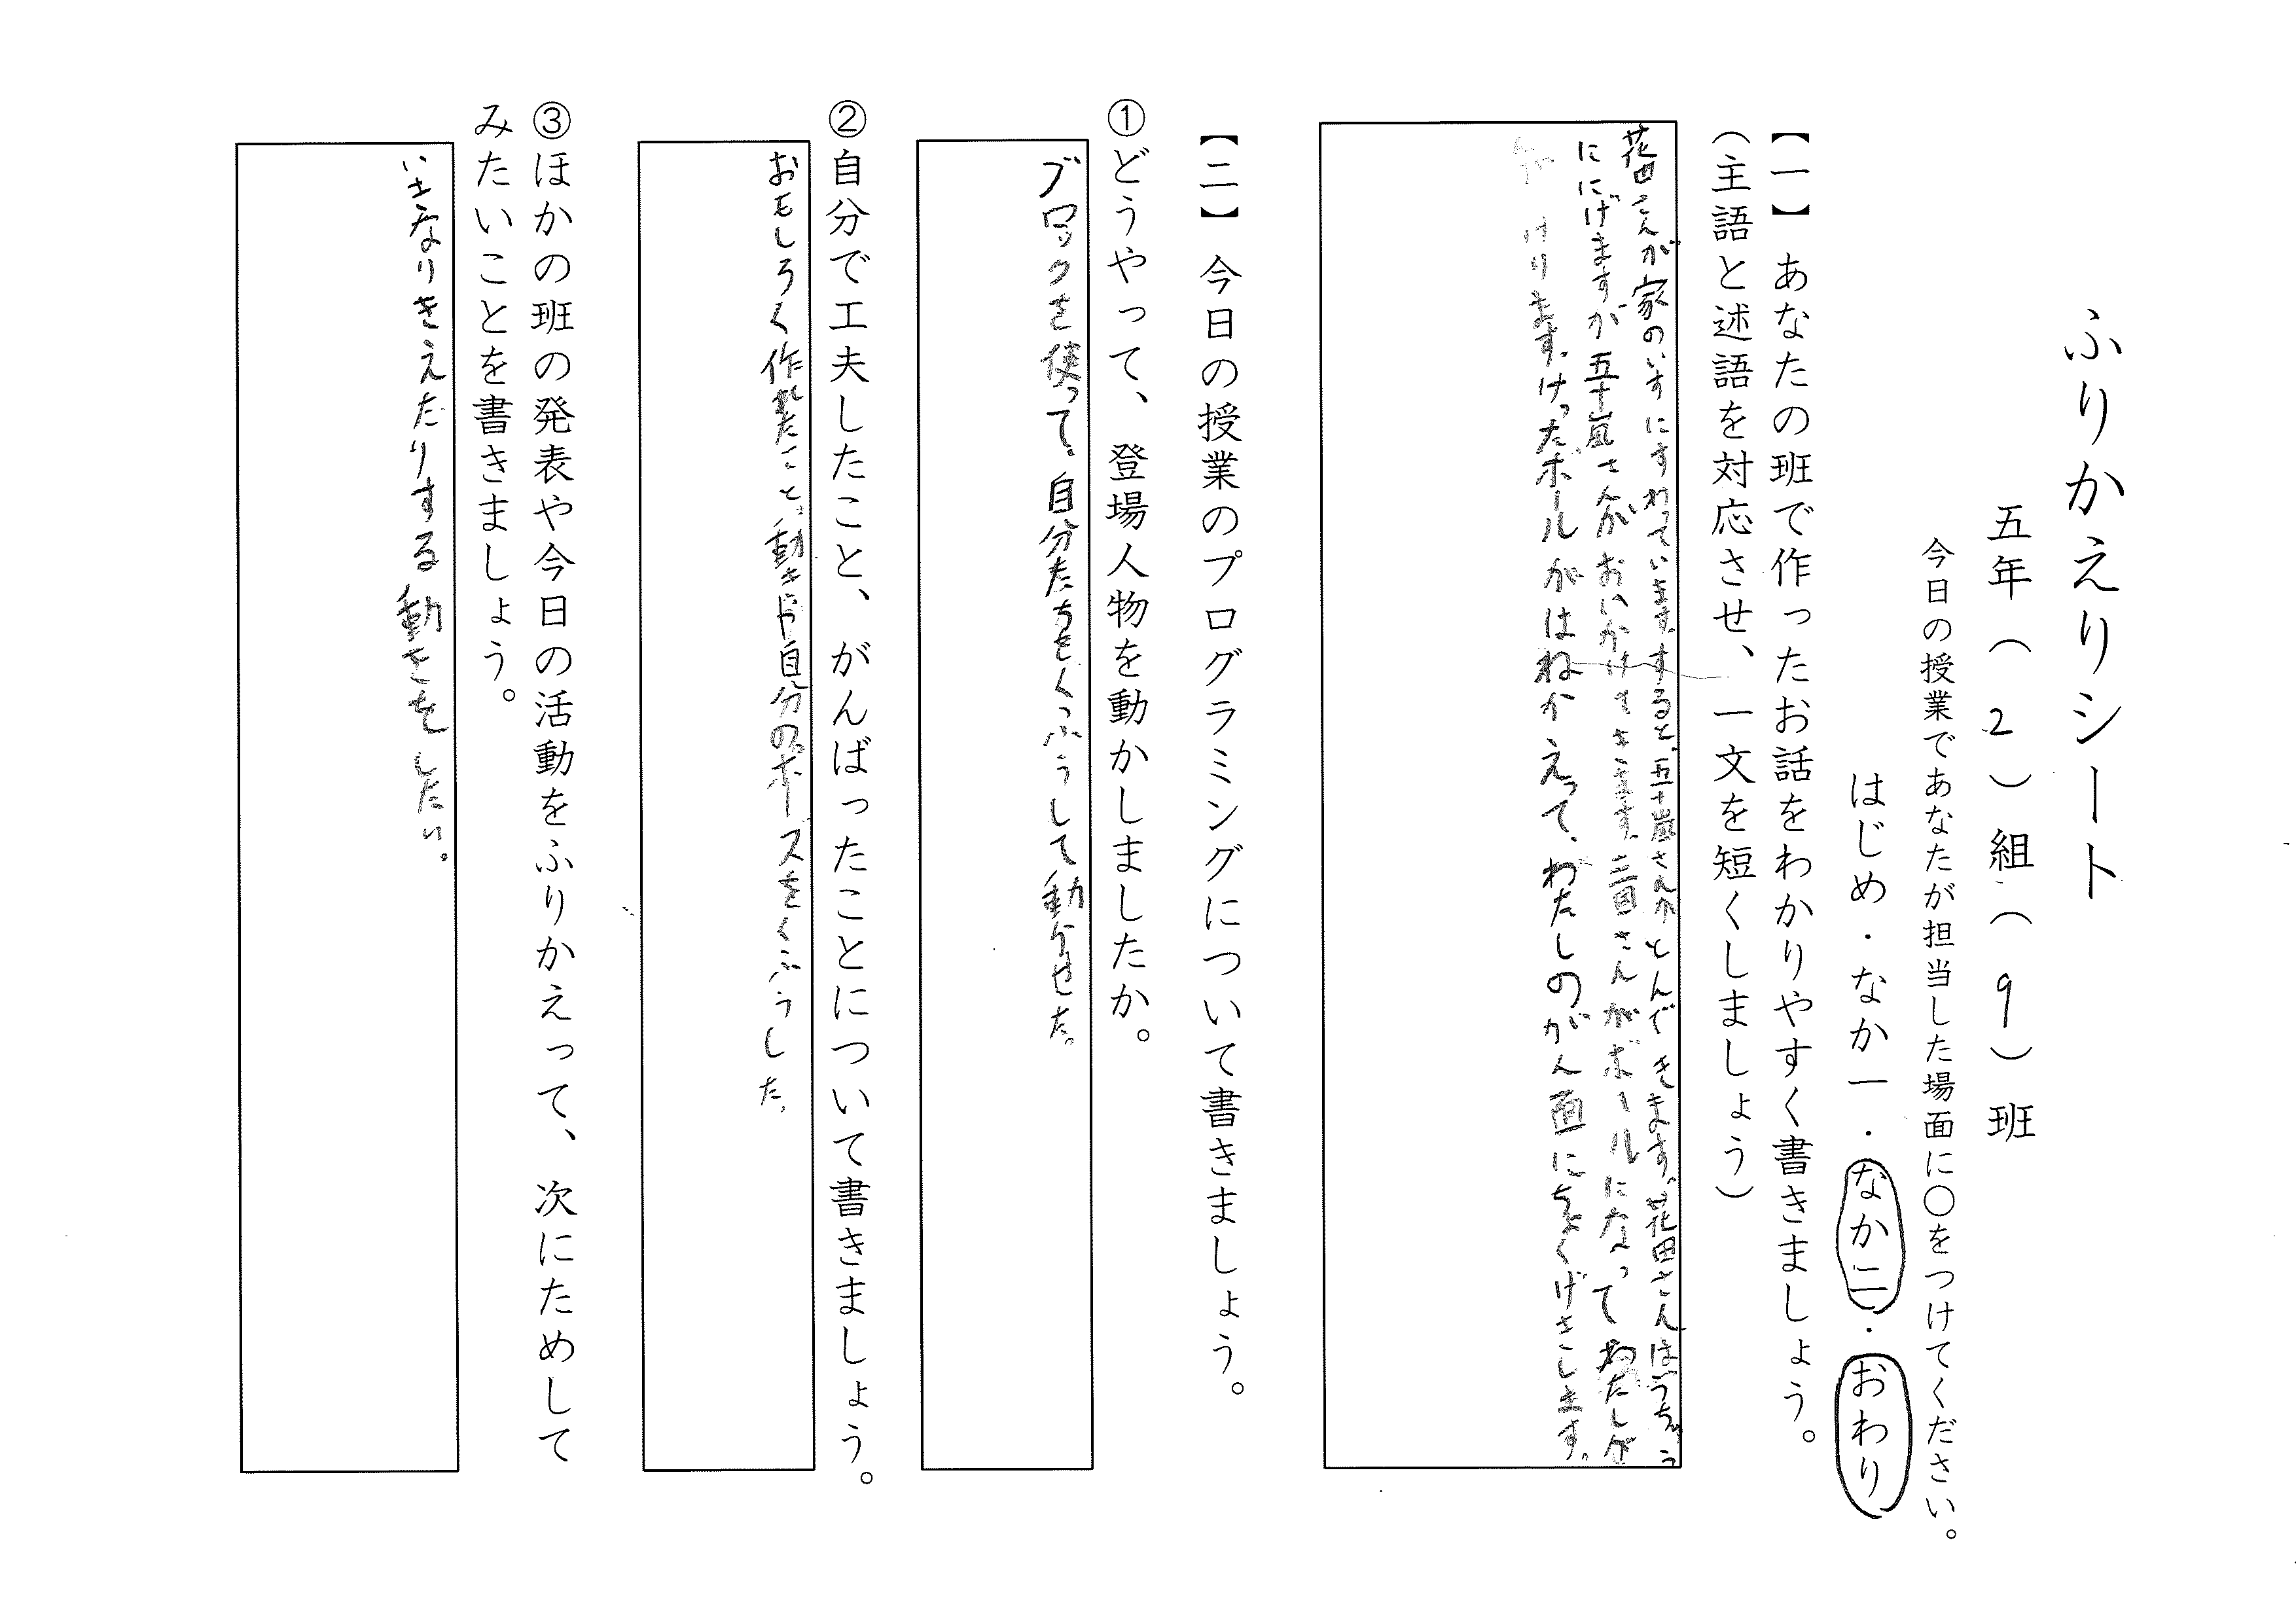 ふりかえりシート
五年（２）組（９）班
今日の授業であなたが担当した場面に〇をつけてください。
はじめ・なか一・なか二・おわり
【一】あなたの班で作ったお話をわかりやすく書きましょう。
（主語と述語を対応させ、一文を短くしましょう）
花田さんが家のいすにすわています。すると、五十嵐さんがとんできます。花田さんはうちゅう
ににげますが五十嵐さんがおいかけてきます。三田さんがボールになってわたしが
けります。けったボールがはねかえって、わたしのがん面にちょくげきします。
【二】今日の授業のプログラミングについて書きましょう。
①どうやって、登場人物を動かしましたか。
ブロックを使って、自分たちもくっふうして動かせた。
②自分で工夫したこと、がんばったことについて書きましょう。
おもしろく作れたこと。動きや自分のポーズをくふうした。
③ほかの班の発表や今日の活動をふりかえって、次にためして
みたいことを書きましょう。
いきなりきえたりする動きをしたい。